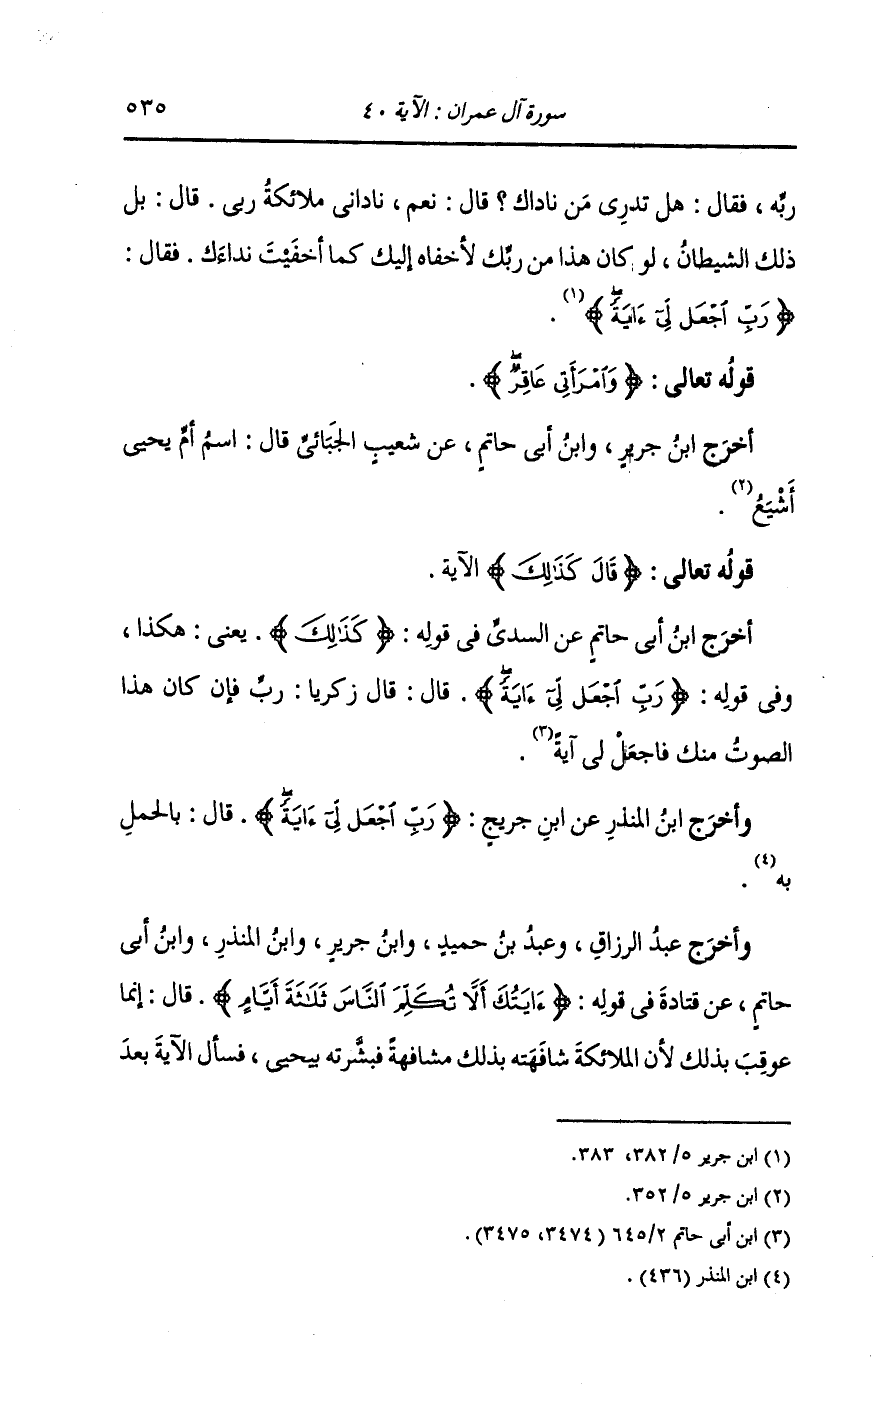 سورة آل عمران : الآية ٤٠ ٥٣٥
ربِّه ، فقال : هل تدرِى مَن ناداك ؟ قال : نعم ، نادانى ملائكةُ ربى . قال : بل
ذلك الشيطانُ ، لو كان هذا من ربِّك لأخفاه إليك كما أخفَيْتَ نداءَك . فقال :
﴿ رَبِّ ٱجْعَل لِّىٓ ءَايَةًۖ ﴾(١) .
قولُه تعالى : ﴿ وَٱمْرَأَتِى عَاقِرٌۖ ﴾ .
أخرَج ابنُ جريرٍ ، وابنُ أبى حاتمٍ ، عن شعيبٍ الجَبَائىِّ قال : اسمُ أمِّ يحيى
أَشْيَعُ(٢) .
قولُه تعالى : ﴿ قَالَ كَذَٰلِكَ ﴾ الآية .
أخرَج ابنُ أبى حاتمٍ عن السدىِّ فى قولِه : ﴿ كَذَٰلِكَ ﴾ . يعنى : هكذا ،
وفى قولِه : ﴿ رَبِّ ٱجْعَل لِّىٓ ءَايَةًۖ ﴾ . قال : قال زكريا : ربِّ فإن كان هذا
الصوتُ منك فاجعَلْ لى آيةً(٣) .
وأخرَج ابنُ المنذرِ عن ابنِ جريجٍ : ﴿ رَبِّ ٱجْعَل لِّىٓ ءَايَةًۖ ﴾ . قال : بالحملِ
به(٤) .
وأخرَج عبدُ الرزاقِ ، وعبدُ بنُ حميدٍ ، وابنُ جريرٍ ، وابنُ المنذرِ ، وابنُ أبى
حاتمٍ ، عن قتادةَ فى قولِه : ﴿ ءَايَتُكَ أَلَّا تُكَلِّمَ ٱلنَّاسَ ثَلَٰثَةَ أَيَّامٍ ﴾ . قال : إنما
عوقِبَ بذلك لأن الملائكةَ شافَهَته بذلك مشافهةً فبشَّرته بيحيى ، فسأل الآيةَ بعدَ
(١) ابن جرير ٥/ ٣٨٢، ٣٨٣.
(٢) ابن جرير ٥/ ٣٥٢.
(٣) ابن أبى حاتم ٦٤٥/٢ (٣٤٧٤، ٣٤٧٥).
(٤) ابن المنذر (٤٣٦) .